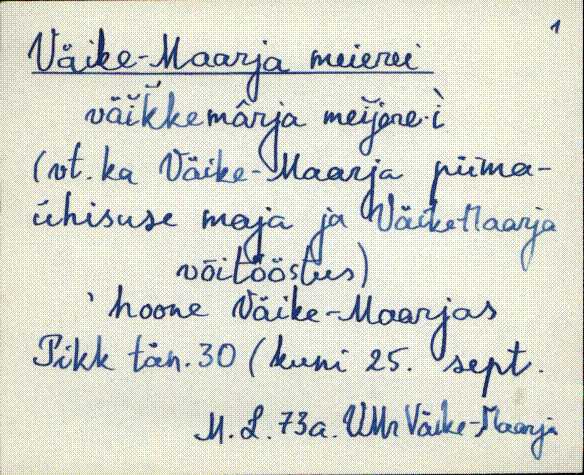 1
Väike-Maarja meierei
väĭk̆kemârja meĭjere·ì
(vt. ka Väike-Maarja piima-
ühisuse maja ja Väike-Maarja
võitööstus)
' hoone Väike-Maarjas
Pikk tän. 30 (kuni 25. sept.
M. L. 73a. VMr Väike-Maarja